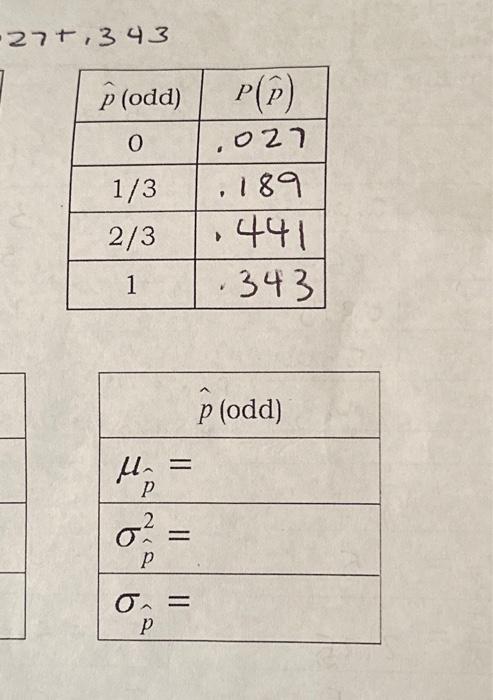 .27+.343
p̂ (odd) P(p̂)
0 .027
1/3 .189
2/3 .441
1 .343
p̂ (odd)
μ_p̂ =
σ²_p̂ =
σ_p̂ =